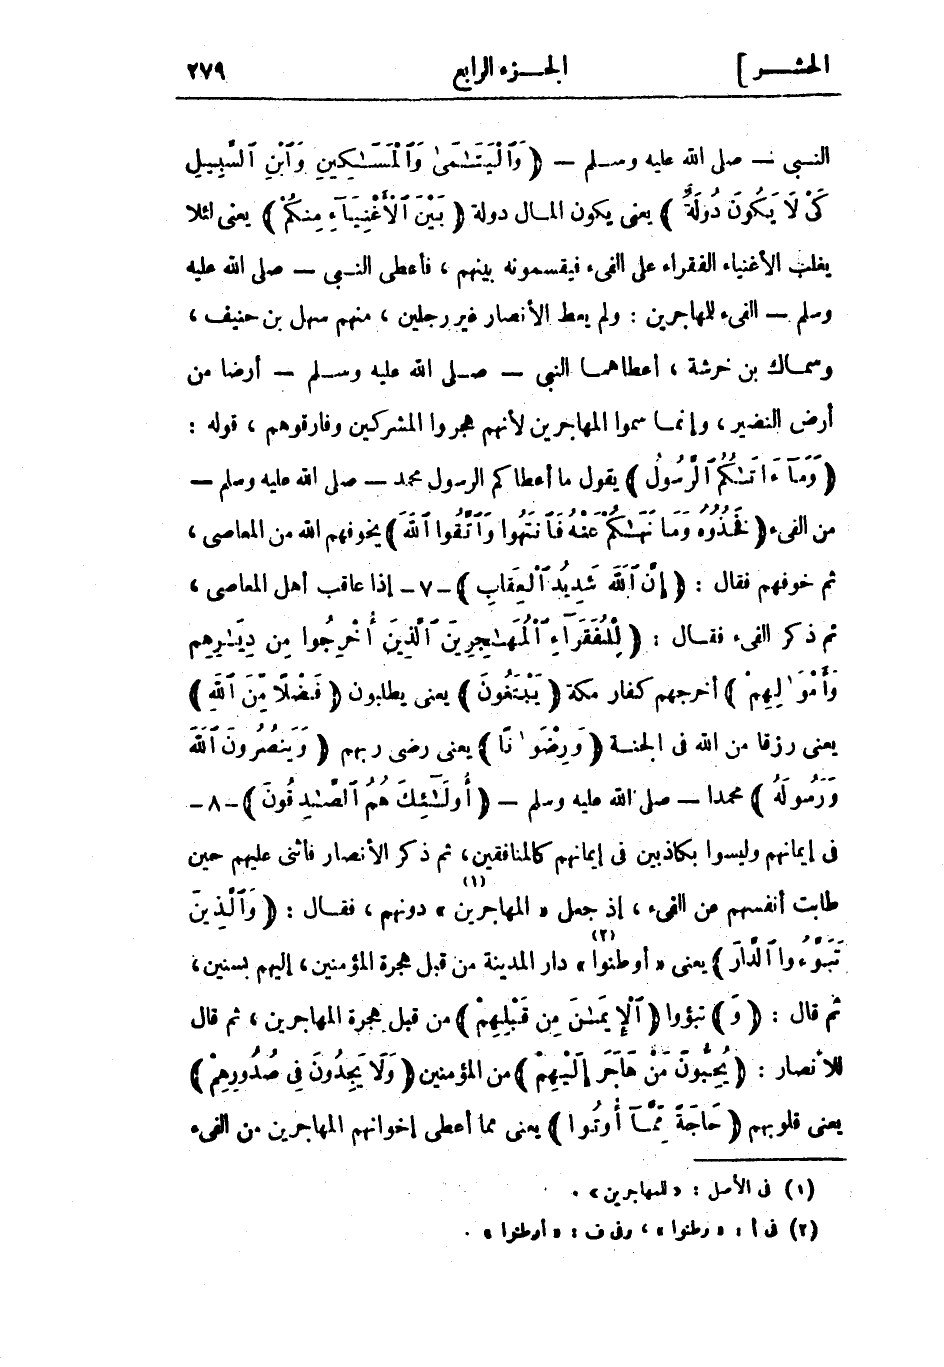 الحشر ] الجزء الرابع ٢٧٩
النبى — صلى الله عليه وسلم — ﴿ وَٱلْيَتَٰمَىٰ وَٱلْمَسَٰكِينِ وَٱبْنِ ٱلسَّبِيلِ
كَىْ لَا يَكُونَ دُولَةً ﴾ يعنى يكون المال دولة ﴿ بَيْنَ ٱلْأَغْنِيَآءِ مِنكُمْ ﴾ يعنى لئلا
يغلب الأغنياء الفقراء على الفىء فيقسمونه بينهم ، فأعطى النبى — صلى الله عليه
وسلم — الفىء للمهاجرين : ولم يعط الأنصار غير رجلين ، منهم سهل بن حنيف ،
وسماك بن خرشة ، أعطاهما النبى — صلى الله عليه وسلم — أرضا من
أرض النضير ، وإنما سموا المهاجرين لأنهم هجروا المشركين وفارقوهم ، قوله :
﴿ وَمَآ ءَاتَىٰكُمُ ٱلرَّسُولُ ﴾ يقول ما أعطاكم الرسول محمد — صلى الله عليه وسلم —
من الفىء ﴿ فَخُذُوهُ وَمَا نَهَىٰكُمْ عَنْهُ فَٱنتَهُوا وَٱتَّقُوا ٱللَّهَ ﴾ يخوفهم الله من المعاصى ،
ثم خوفهم فقال : ﴿ إِنَّ ٱللَّهَ شَدِيدُ ٱلْعِقَابِ ﴾ -٧- إذا عاقب أهل المعاصى ،
ثم ذكر الفىء فقال : ﴿ لِلْفُقَرَآءِ ٱلْمُهَٰجِرِينَ ٱلَّذِينَ أُخْرِجُوا مِن دِيَٰرِهِم
وَأَمْوَٰلِهِمْ ﴾ أخرجهم كفار مكة ﴿ يَبْتَغُونَ ﴾ يعنى يطلبون ﴿ فَضْلًا مِّنَ ٱللَّهِ ﴾
يعنى رزقا من الله فى الجنة ﴿ وَرِضْوَٰنًا ﴾ يعنى رضى ربهم ﴿ وَيَنصُرُونَ ٱللَّهَ
وَرَسُولَهُ ﴾ محمدا — صلى الله عليه وسلم — ﴿ أُولَٰٓئِكَ هُمُ ٱلصَّٰدِقُونَ ﴾ -٨-
فى إيمانهم وليسوا بكاذبين فى إيمانهم كالمنافقين ، ثم ذكر الأنصار فأثنى عليهم حين
طابت أنفسهم عن الفىء ، إذ جعل « المهاجرين (١) » دونهم ، فقال : ﴿ وَٱلَّذِينَ
تَبَوَّءُوا ٱلدَّارَ ﴾ يعنى « أوطنوا (٢) » دار المدينة من قبل هجرة المؤمنين ، إليهم بسنين ،
ثم قال : ﴿ وَ ﴾ تبؤوا ﴿ ٱلْإِيمَٰنَ مِن قَبْلِهِمْ ﴾ من قبل هجرة المهاجرين ، ثم قال
للأنصار : ﴿ يُحِبُّونَ مَنْ هَاجَرَ إِلَيْهِمْ ﴾ من المؤمنين ﴿ وَلَا يَجِدُونَ فِى صُدُورِهِمْ ﴾
يعنى قلوبهم ﴿ حَاجَةً مِّمَّآ أُوتُوا ﴾ يعنى مما أعطى إخوانهم المهاجرين من الفىء
(١) فى الأصل : « للمهاجرين » .
(٢) فى أ : « وطنوا » ، وفى ف : « أوطنوا » .